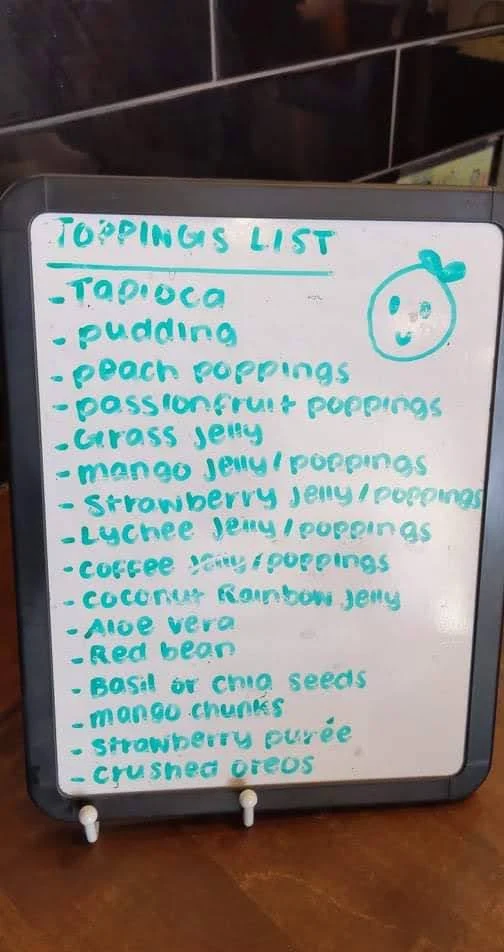 TOPPINGS LIST
- Tapioca
- pudding
- peach poppings
- passionfruit poppings
- Grass jelly
- mango jelly/poppings
- Strawberry jelly/poppings
- Lychee jelly/poppings
- coffee jelly/poppings
- coconut Rainbow jelly
- Aloe vera
- Red bean
- Basil or chia seeds
- mango chunks
- strawberry purée
- crushed oreos